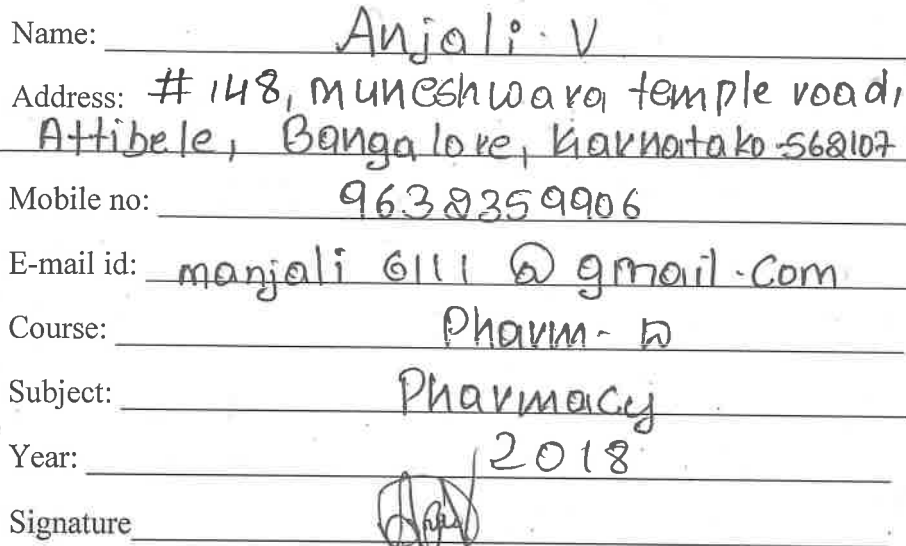 Name: Anjali. V
Address: # 148, muneshwara temple road,
Attibele, Bangalore, Karnataka-562107
Mobile no: 9632359906
E-mail id: manjali 6111 @ gmail.com
Course: Pharm-D
Subject: Pharmacy
Year: 2018
Signature